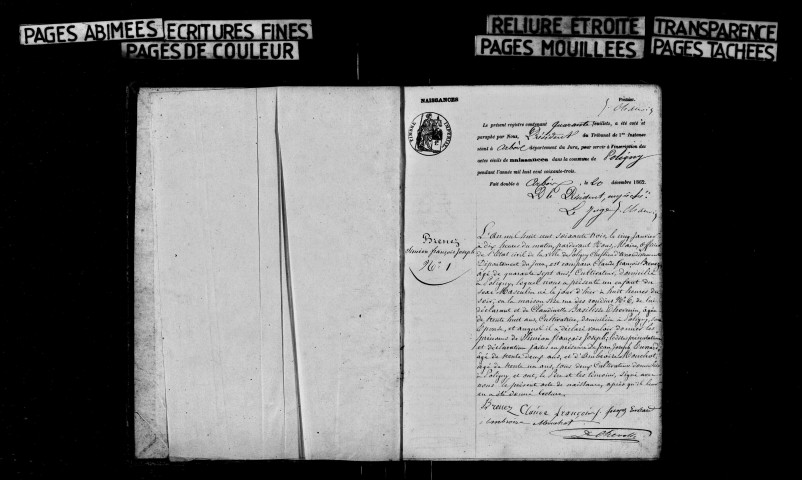 PAGES ABIMEES ECRITURES FINES
PAGES DE COULEUR
RELIURE ETROITE TRANSPARENCE
PAGES MOUILLEES PAGES TACHEES
NAISSANCES
Premier.
TIMBRE IMPERIAL
Le présent registre contenant quarante feuillets, a été coté et
paraphé par Nous, Président du Tribunal de 1re Instance
séant à Arbois département du Jura, pour servir à l'inscription des
actes civils de naissances dans la commune de Poligny
pendant l'année mil huit cent soixante-trois.
Fait double à Arbois, le 20 décembre 1862.
Le Président,
Le Juge
Brenez
Siméon françois Joseph
N° 1
L'an mil huit cent soixante trois, le cinq janvier
à dix heures du matin, pardevant Nous, Maire, officier
de l'Etat civil de la ville de Poligny
Département du Jura, est comparu Claude françois Brenez
âgé de quarante sept ans, Cultivateur, domicilié
à Poligny, lequel nous a présenté un enfant du
sexe Masculin né le jour d'hier à huit heures du
soir, en la maison N° 6, de lui
déclarant et de Claudine Basilisse âgée
de trente huit ans, Cultivatrice, domiciliée à Poligny, son
Epouse, et auquel il a déclaré vouloir donner les
prénoms de Siméon françois Joseph; lesdites présentation
et déclaration faites en présence de Jean Joseph
âgé de trente deux ans, et d'Ambroise
âgé de trente un ans, tous deux Cultivateurs domiciliés
à Poligny et ont, le Père et les témoins, signé avec
nous le présent acte de naissance, après qu'il leur
en a été donné lecture.
Brenez Claude françois Joseph
Ambroise